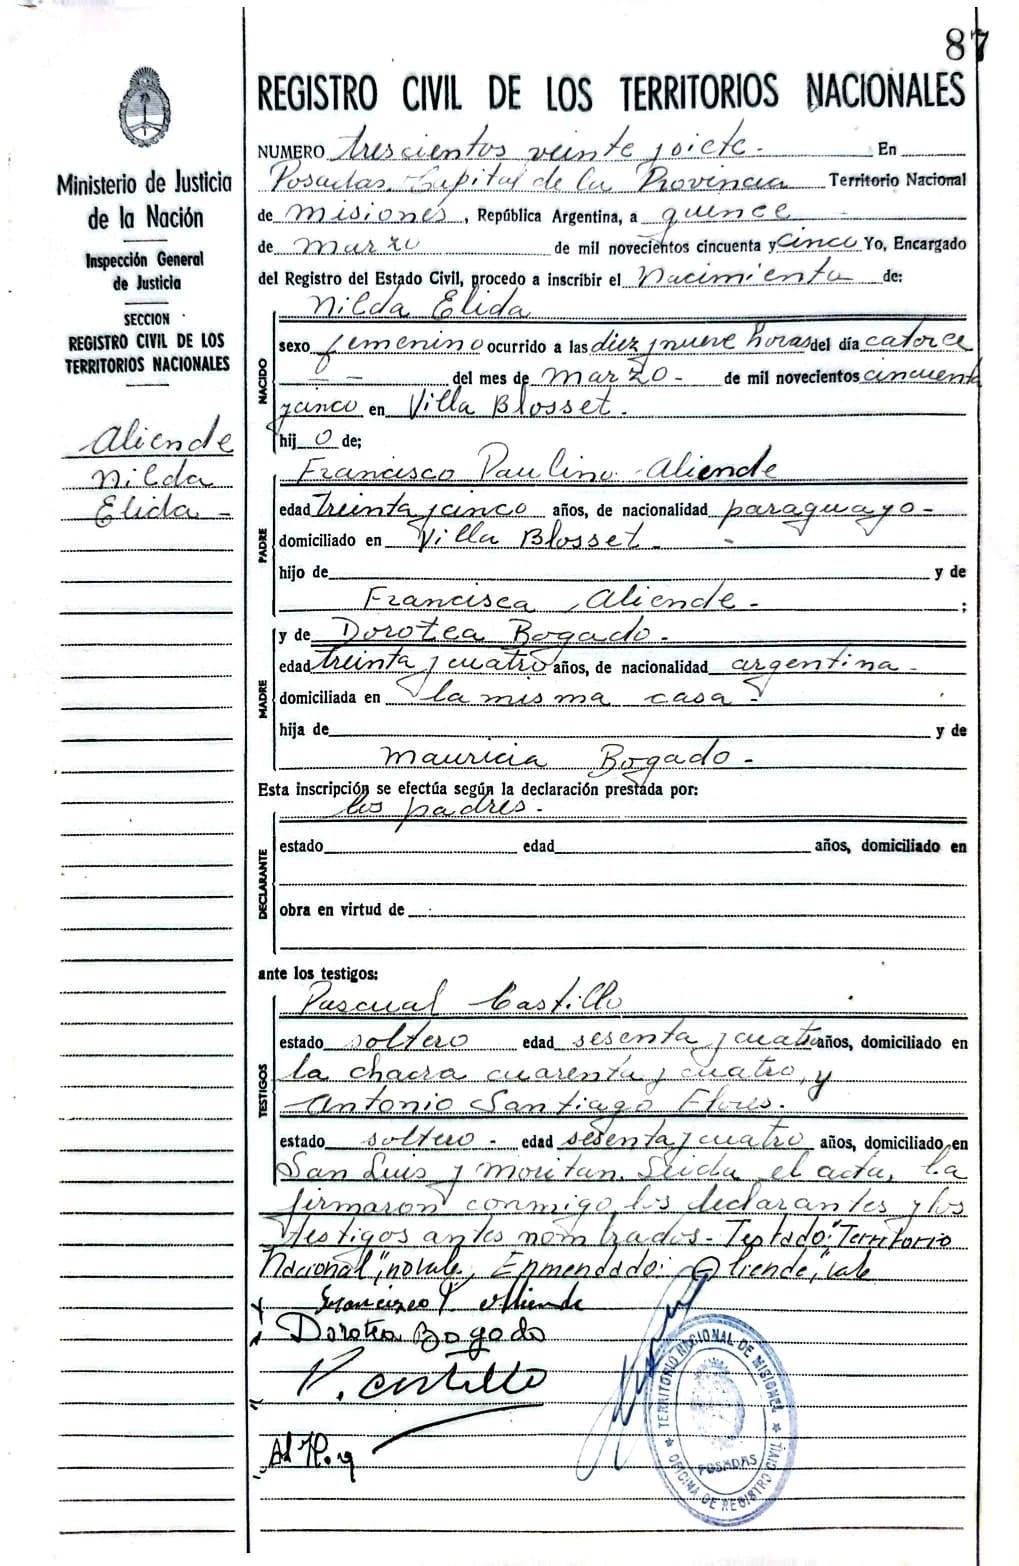 87
REGISTRO CIVIL DE LOS TERRITORIOS NACIONALES
Ministerio de Justicia
de la Nación
Inspección General
de Justicia
SECCION
REGISTRO CIVIL DE LOS
TERRITORIOS NACIONALES
Aliende
Nilda
Elida -
NUMERO trescientos veinte y siete - En
Posadas, Capital de la Provincia Territorio Nacional
de Misiones, República Argentina, a quince
de Marzo de mil novecientos cincuenta y cinco Yo, Encargado
del Registro del Estado Civil, procedo a inscribir el Nacimiento de:
NACIDO
Nilda Elida
sexo femenino ocurrido a las diez y nueve horas del día catorce
- - del mes de Marzo - de mil novecientos cincuenta
y cinco en Villa Blosset.
hij o de;
PADRE
Francisco Paulino Aliende
edad treinta y cinco años, de nacionalidad paraguayo -
domiciliado en Villa Blosset -
hijo de y de
Francisca Aliende - ;
MADRE
y de Dorotea Bogado -
edad treinta y cuatro años, de nacionalidad argentina -
domiciliada en la misma casa -
hija de y de
Mauricia Bogado -
Esta inscripción se efectúa según la declaración prestada por:
los padres -
DECLARANTE
estado edad años, domiciliado en
obra en virtud de
ante los testigos:
TESTIGOS
Pascual Castillo
estado soltero edad sesenta y cuatro años, domiciliado en
la chacra cuarenta y cuatro, y
Antonio Santiago Flores.
estado soltero - edad sesenta y cuatro años, domiciliado en
San Luis y Moritan. Leida el acta, la
firmaron conmigo los declarantes y los
testigos antes nombrados - Testado: "Territorio
Nacional", no vale, Enmendado: Aliende, "vale
Francisco P. Aliende
Dorotea Bogado
P. Castillo
TERRITORIO NACIONAL DE MISIONES
POSADAS
OFICINA DE REGISTRO CIVIL